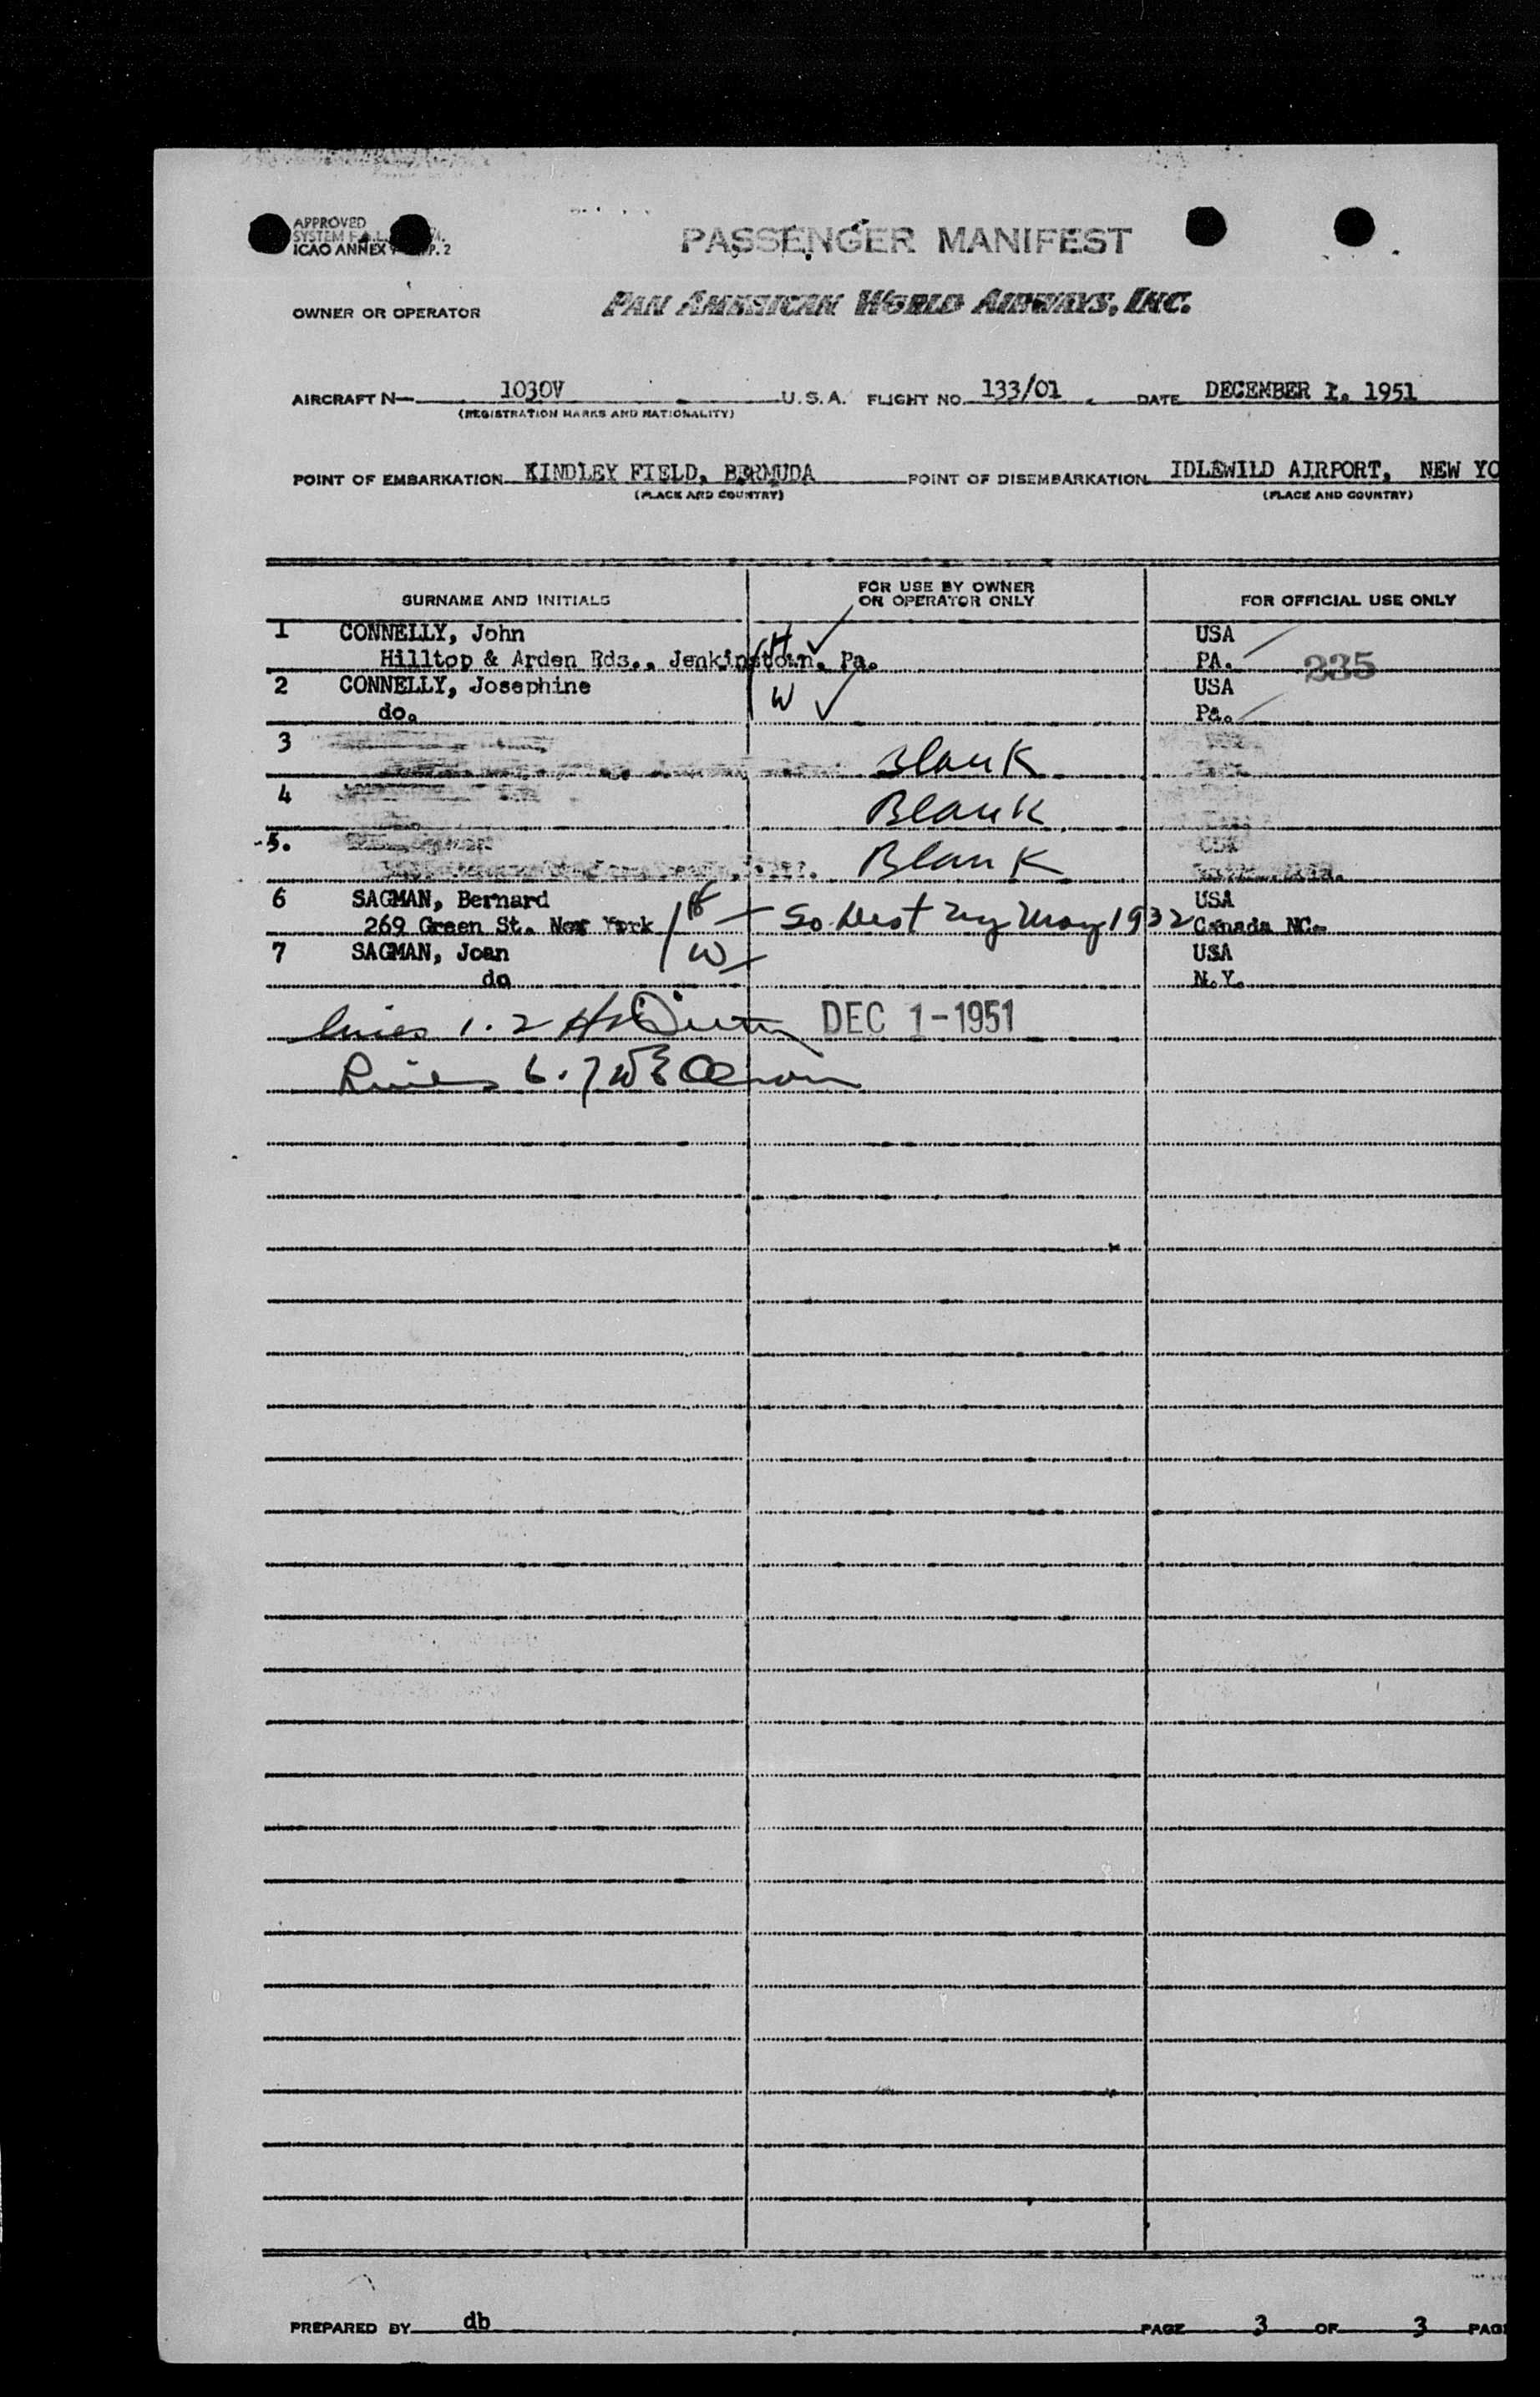 APPROVED
SYSTEM
ICAO ANNEX P. 2
PASSENGER MANIFEST
OWNER OR OPERATOR
PAN AMERICAN WORLD AIRWAYS, INC.
AIRCRAFT N— 1030V U.S.A. FLIGHT NO. 133/01 DATE DECEMBER 1. 1951
(REGISTRATION MARKS AND NATIONALITY)
POINT OF EMBARKATION KINDLEY FIELD, BERMUDA POINT OF DISEMBARKATION IDLEWILD AIRPORT, NEW YO
(PLACE AND COUNTRY) (PLACE AND COUNTRY)
SURNAME AND INITIALS FOR USE BY OWNER OR OPERATOR ONLY FOR OFFICIAL USE ONLY
1 CONNELLY, John H USA
Hilltop & Arden Rds., Jenkinstown, Pa. PA. 235
2 CONNELLY, Josephine W USA
do. Pa.
3 Blank
4 Blank
5. Blank
6 SAGMAN, Bernard H USA
269 Green St. New York So. Dist NY May 1932 Canada NC.
7 SAGMAN, Joan W USA
do N.Y.
Lines 1.2 DEC 1-1951
Lines 6.7
PREPARED BY db PAGE 3 OF 3 PAG